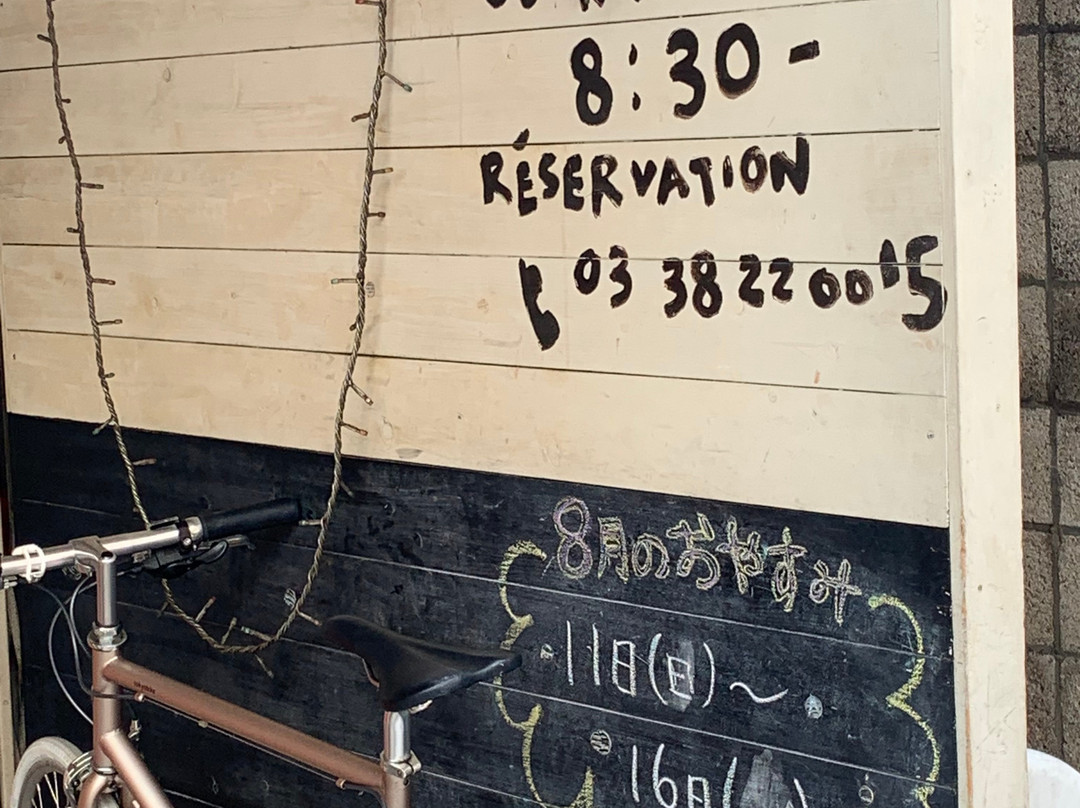 8:30-
RÉSERVATION
03 3822 0015
8月のおやすみ
11日(日)～
16日(